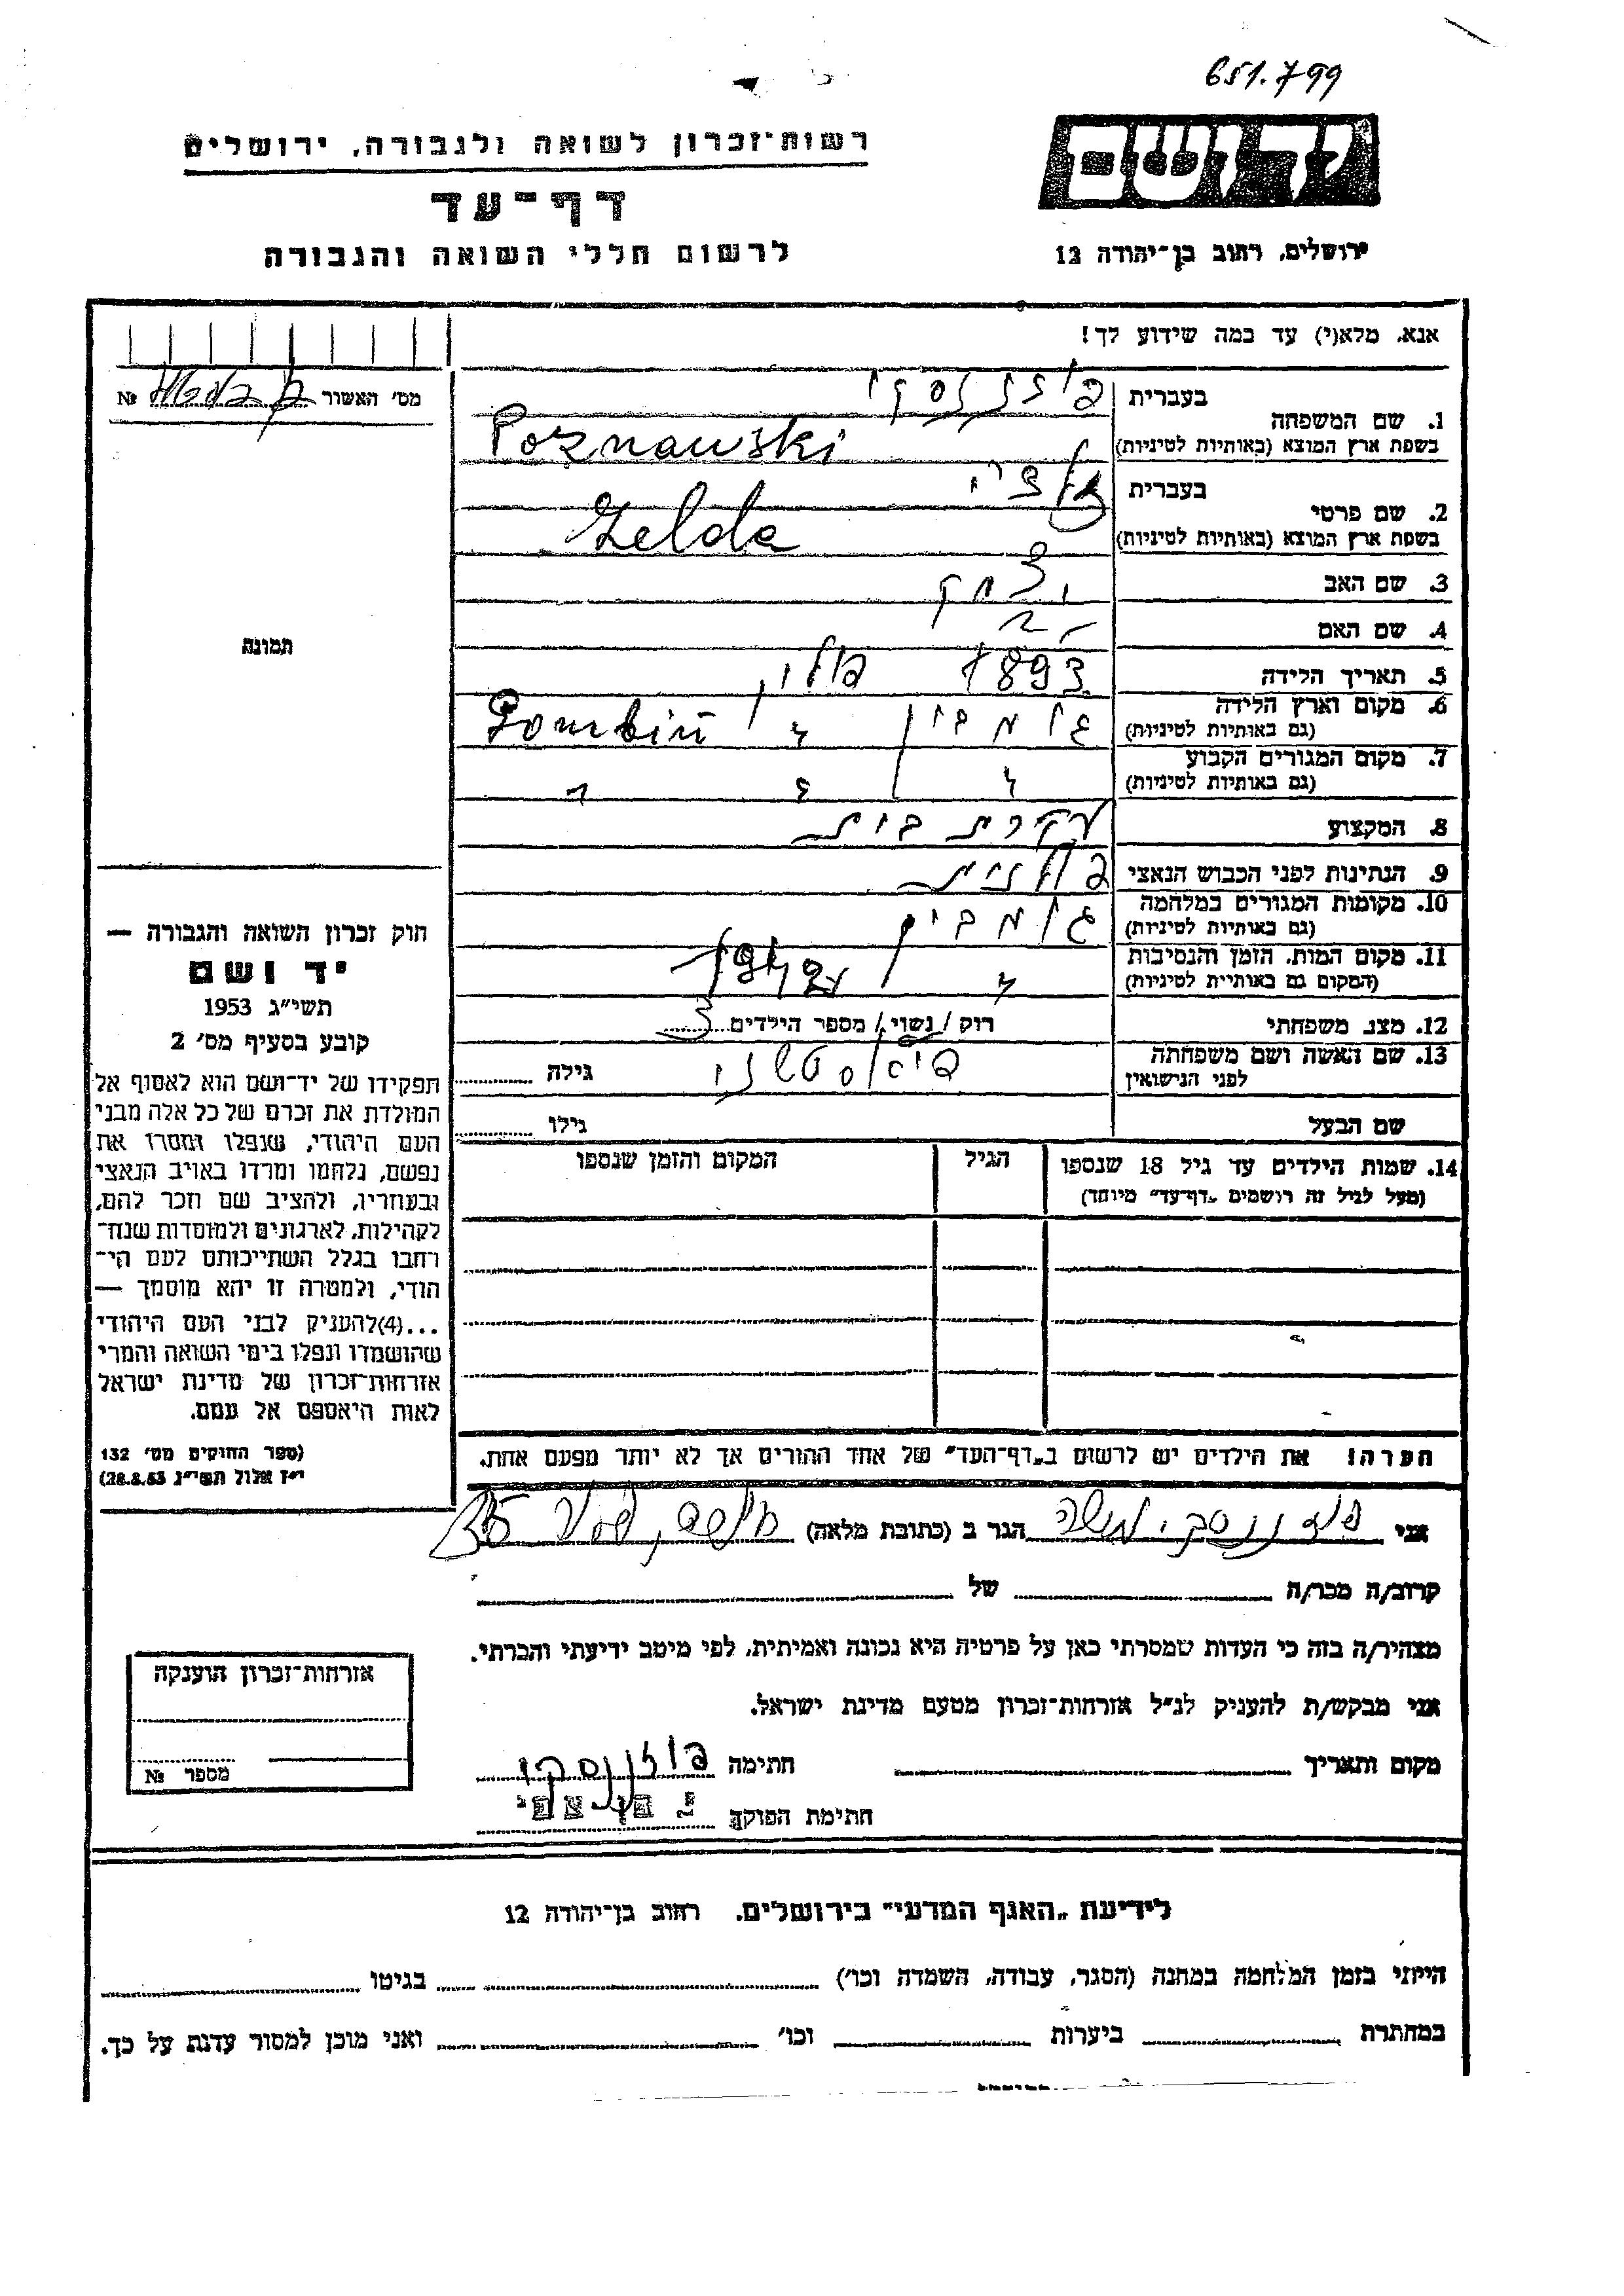 651.799
רשות־זכרון לשואה ולגבורה, ירושלים
יד ושם
דף־עד
לרשום חללי השואה והגבורה
ירושלים, רחוב בן־יהודה 12
אנא, מלא(י) עד כמה שידוע לך!
מס׳ האשור №
1. שם המשפחה
בעברית פוזננסקי
בשפת ארץ המוצא (באותיות לטיניות) Poznawski
2. שם פרטי
בעברית
בשפת ארץ המוצא (באותיות לטיניות) Zelda
3. שם האב יצחק
4. שם האם
5. תאריך הלידה 1893 פולין
6. מקום וארץ הלידה
(גם באותיות לטיניות) גומבין " Gombin
7. מקום המגורים הקבוע
(גם באותיות לטיניות) " " "
8. המקצוע עקרת בית
9. הנתינות לפני הכבוש הנאצי פולנית
10. מקומות המגורים במלחמה
(גם באותיות לטיניות) גומבין
11. מקום המות, הזמן והנסיבות
(המקום גם באותיות לטיניות) " 1942
12. מצב משפחתי רוק / נשוי / מספר הילדים 3
13. שם האשה ושם משפחתה
לפני הנישואין גילה
שם הבעל גילו
14. שמות הילדים עד גיל 18 שנספו
(מעל לגיל זה רושמים „דף־עד״ מיוחד)
הגיל
המקום והזמן שנספו
הערה! את הילדים יש לרשום ב„דף־העד״ של אחד ההורים אך לא יותר מפעם אחת.
תמונה
חוק זכרון השואה והגבורה —
יד ושם
תשי״ג 1953
קובע בסעיף מס׳ 2
תפקידו של יד־ושם הוא לאסוף אל
המולדת את זכרם של כל אלה מבני
העם היהודי, שנפלו ומסרו את
נפשם, נלחמו ומרדו באויב הנאצי
ובעוזריו, ולהציב שם וזכר להם,
לקהילות, לארגונים ולמוסדות שנח־
רבו בגלל השתייכותם לעם הי־
הודי, ולמטרה זו יהא מוסמך —
...(4) להעניק לבני העם היהודי
שהושמדו ונפלו בימי השואה והמרי
אזרחות־זכרון של מדינת ישראל
לאות היאספם אל עמם.
(ספר החוקים מס׳ 132
י״ז אלול תשי״ג 28.8.53)
אני פוזננסקי משה הגר ב (כתובת מלאה) 35
קרוב/ה מכר/ה של
מצהיר/ה בזה כי העדות שמסרתי כאן על פרטיה היא נכונה ואמיתית, לפי מיטב ידיעתי והכרתי.
אני מבקש/ת להעניק לנ״ל אזרחות־זכרון מטעם מדינת ישראל.
מקום ותאריך חתימה פוזננסקי
חתימת הפוקד
אזרחות־זכרון הוענקה
מספר №
לידיעת „האגף המדעי״ בירושלים. רחוב בן־יהודה 12
הייתי בזמן המלחמה במחנה (הסגר, עבודה, השמדה וכו׳) בגיטו
במחתרת ביערות וכו׳ ואני מוכן למסור עדות על כך.